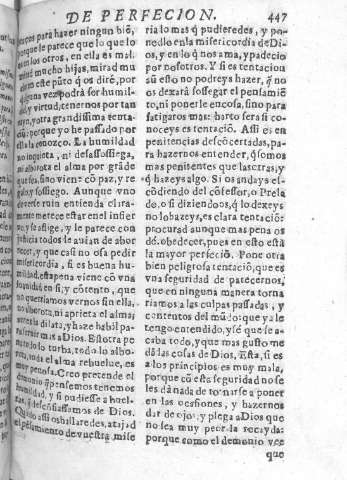 DE PERFECION. 447
zeros para hazer ningun biē,
porque le parece que lo que lo
en los otros, en ella es mal.
mirad mucho hijas, mirad mu
cho en este pūto q̄ os dirè, por
alguna vez podrá ser humil-
y virtud, tenernos por tan
ruyn, y otra grandissima tenta-
ciō: porque yo he passado por
ella la conozco. La humildad
no inquieta, ni desassossiega,
ni alborota el alma por grāde
que sea, sino viene cō paz, y re-
galo, y sossiego. Aunque vno
de verse ruin entienda clara-
mente merece estar enel infier
no, y se aflige, y le parece con
justicia todos le auian de abor
recer, y que casi no osa pedir
misericordia, si es buena humil
dad, esta pena viene cō vna
suauidad en si, y cōtento, que
no querriamos vernos sin ella,
no alborota, ni aprieta el alma;
antes la dilata, y haze habil pa-
ra seruir mas a Dios. Estotra pe
na todo lo turba, todo lo albo-
rota, toda el alma rebuelue, es
muy penosa. Creo pretende el
demonio q̄ pensemos tenemos
humildad, y si pudiesse a buel-
tas, q̄ descōfiassemos de Dios.
Quādo assi os hallaredes, atajad
el pēsamiento de vuestra mise
ria lo mas q̄ pudieredes, y po-
nedlo enla misericordia de Di-
os, y en lo q̄ nos ama, y padecio
por nosotros. Y si es tentacion
aū esto no podreys hazer, q̄ no
os dexará sossegar el pensamiē
to, ni ponerle en cosa, sino para
fatigaros mas: harto sera si co-
noceys es tentaciō. Assi es en
penitencias descōcertadas, pa-
ra hazernos entender, q̄ somos
mas penitentes que las otras, y
q̄ hazeys algo. Si os andays es-
cōdiendo del cōfessor, o Prela
do, o si diziendoos, q̄ lo dexeys
no lo hazeys, es clara tentaciō:
procurad aunque mas pena os
dè, obedecer, pues en esto està
la mayor perfeciō. Pone otra
bien peligrosa tentaciō, que es
vna seguridad de parecernos,
que en ninguna manera torna
riamos a las culpas passadas, y
contentos del mūdo: que ya le
tengo entendido, y sè que se a-
caba todo, y que mas gusto me
dā las cosas de Dios. Esta, si es
a los principios es muy mala,
porque cō esta seguridad no se
les da nada de tornarse a poner
en las ocasiones, y hazernos
dar de ojos, y plega a Dios que
no sea muy peor la recayda:
porque como el demonio vee
que